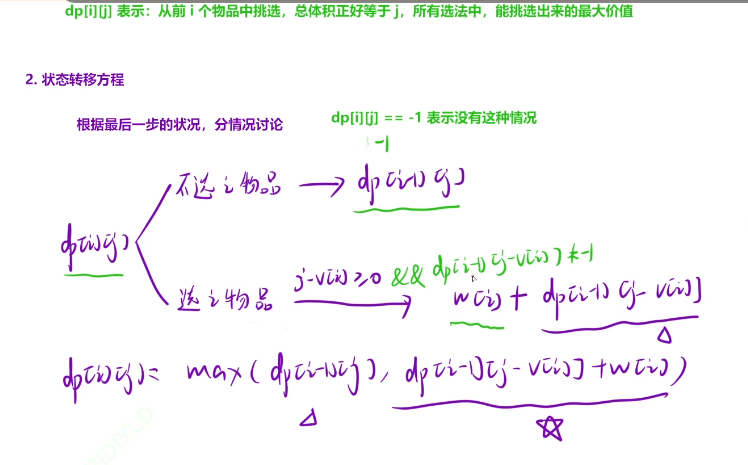 dp[i][j] 表示：从前 i 个物品中挑选，总体积正好等于 j，所有选法中，能挑选出来的最大价值
2. 状态转移方程
根据最后一步的状况，分情况讨论
dp[i][j] == -1 表示没有这种情况
-1
不选 i 物品 → dp[i-1][j]
dp[i][j]
选 i 物品 j-v[i] ≥ 0 && dp[i-1][j-v[i]] ≠ -1 w[i] + dp[i-1][j-v[i]]
dp[i][j] = max(dp[i-1][j], dp[i-1][j-v[i]]+w[i])